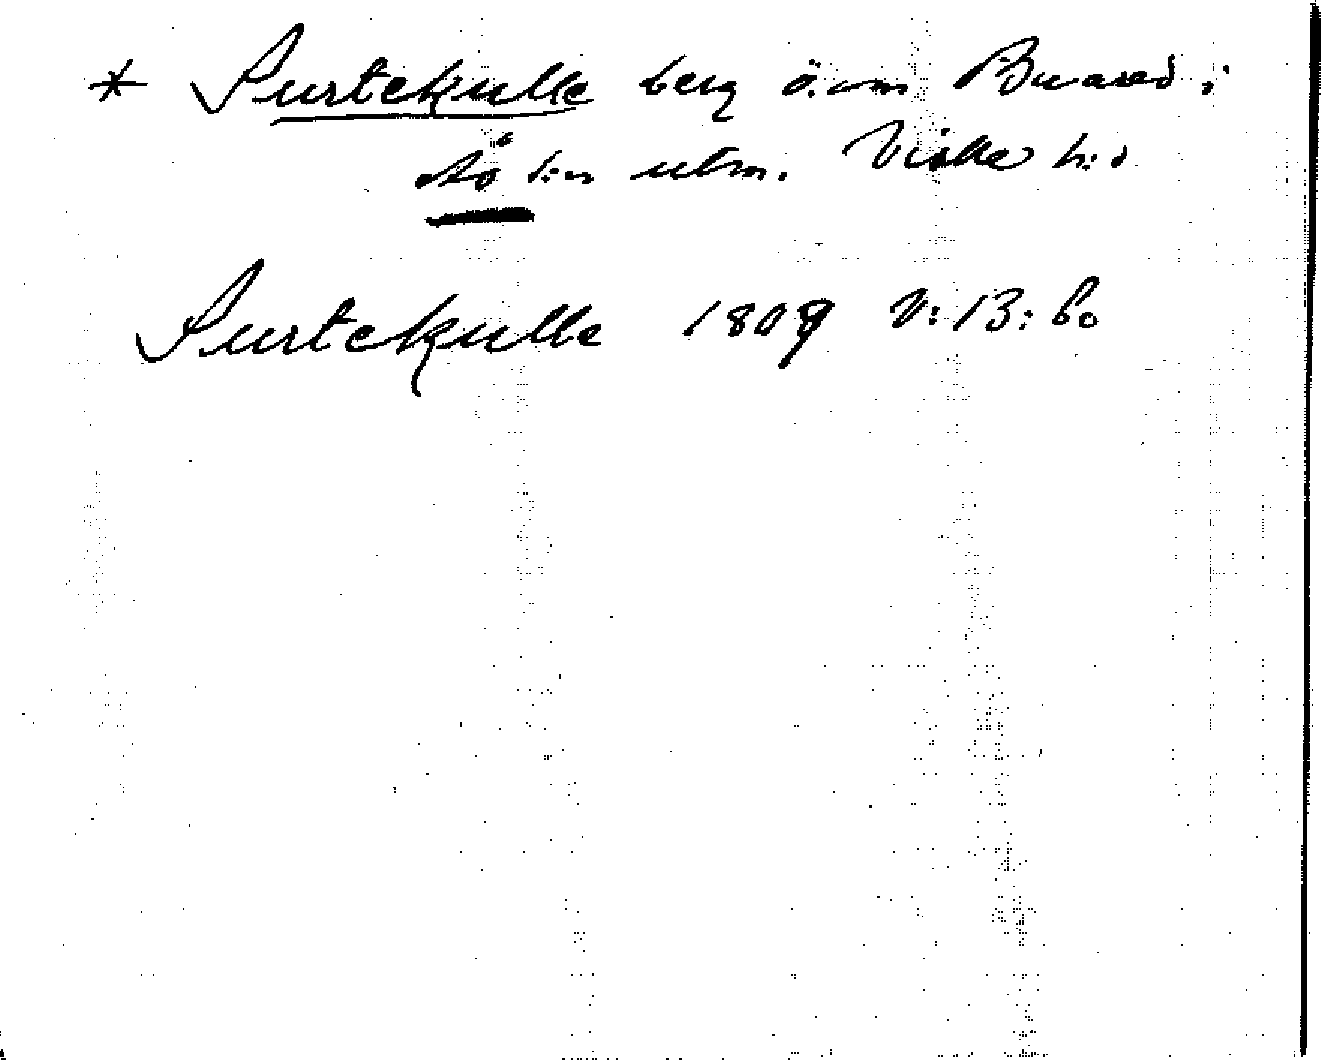 * Surtekulle berg ö. om Buared i
s:n utm. Viske h:d
Surtekulle 1809 V:13:60